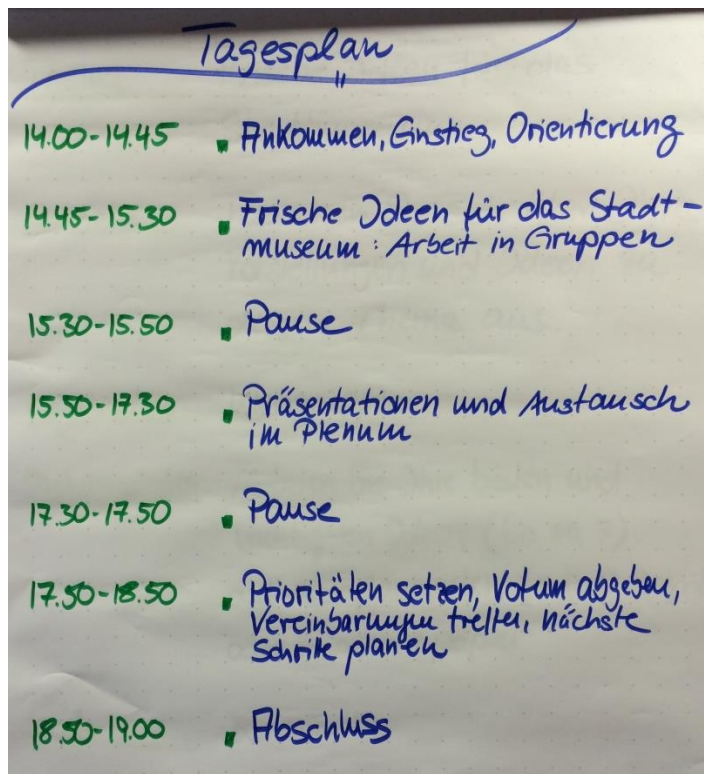 Tagesplan
14.00-14.45 ▪ Ankommen, Einstieg, Orientierung
14.45-15.30 ▪ Frische Ideen für das Stadt-
museum: Arbeit in Gruppen
15.30-15.50 ▪ Pause
15.50-17.30 ▪ Präsentationen und Austausch
im Plenum
17.30-17.50 ▪ Pause
17.50-18.50 ▪ Prioritäten setzen, Votum abgeben,
Vereinbarungen treffen, nächste
Schritte planen
18.50-19.00 ▪ Abschluss